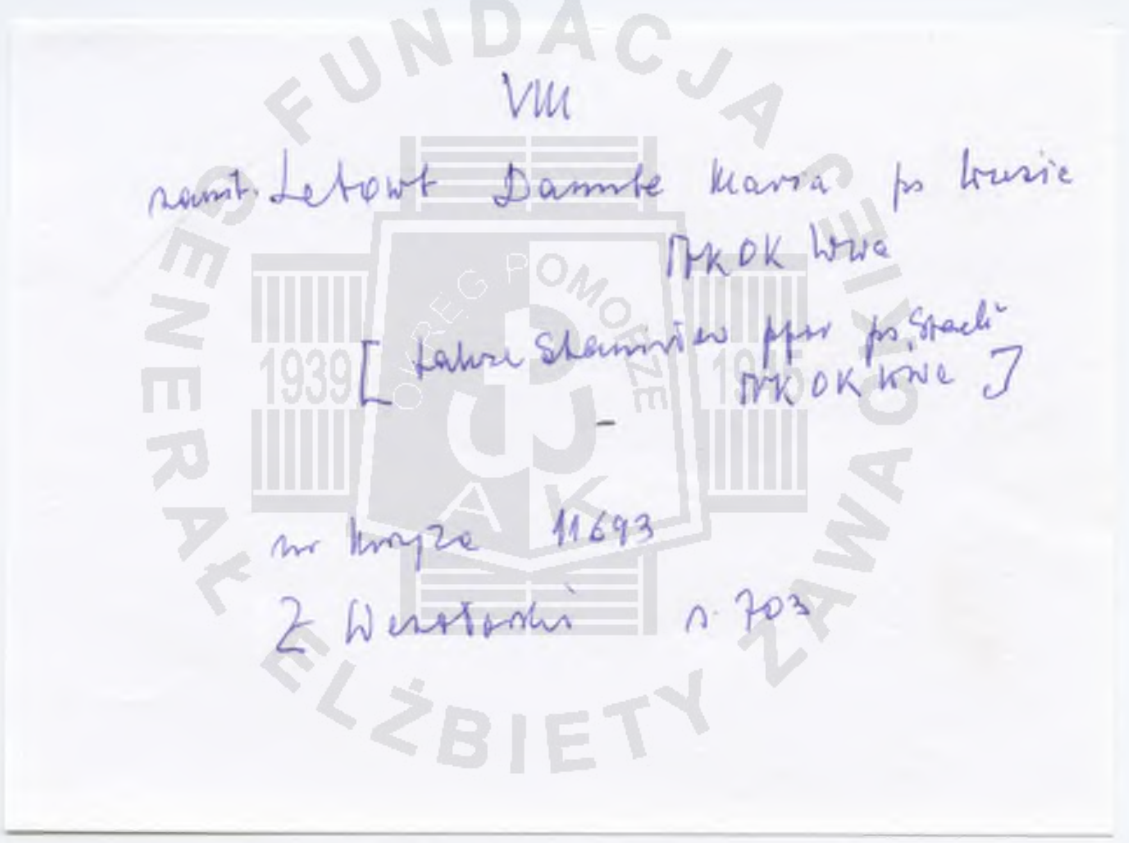 VIII
sanit. Łetowt Danuta Maria ps
VrK OK Wwa
[ także Stanisław ppor ps. Stach
VrK OK Wwa ]
nr krzyża 11693
Z Wesołowski s. 703
FUNDACJA
GENERAŁ ELŻBIETY ZAWACKIEJ
OKRĘG POMORZE
1939 1945
AK